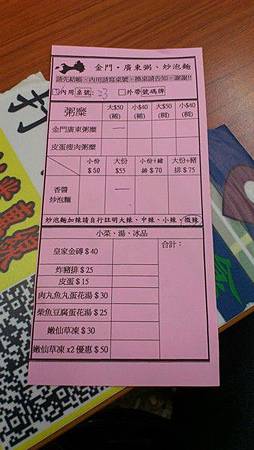 金門‧廣東粥、炒泡麵
請先結帳、內用請寫桌號、換桌請告知、謝謝!!
內用 桌號：23 外帶 號碼牌
粥糜 大$50 小$40 大$50 小$40
金門廣東粥糜 一
皮蛋瘦肉粥糜
小份 大份 小份+豬 大份+豬
$50 $55 排$70 排$75
香醬 一
炒泡麵
炒泡麵加辣請自行註明大辣、中辣、小辣、微辣
小菜、湯、冰品
合計：
皇家金磚$40
炸豬排$25
皮蛋$15
肉丸魚丸蛋花湯$30
柴魚豆腐蛋花湯$25
嫩仙草凍$30
嫩仙草凍x2優惠$50